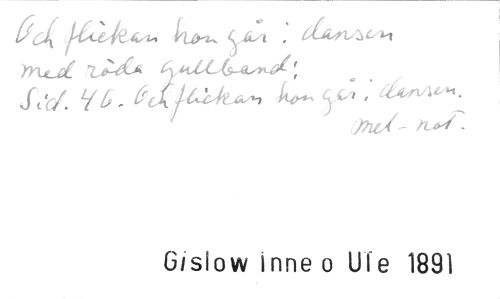 Och flickan hon går i dansen
med röda gullband;
Sid. 46. Och flickan hon går i dansen.
mel-not.
Gislow Inne o Ute 1891